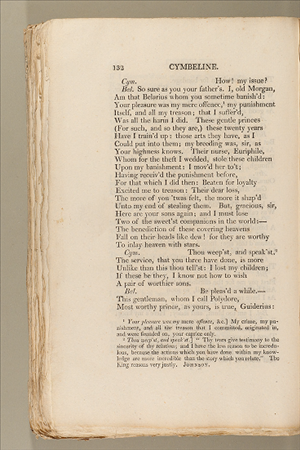 132 CYMBELINE.
Cym. How! my issue?
Bel. So sure as you your father's. I, old Morgan,
Am that Belarius whom you sometime banish'd:
Your pleasure was my mere offence,⁸ my punishment
Itself, and all my treason; that I suffer'd,
Was all the harm I did. These gentle princes
(For such, and so they are,) these twenty years
Have I train'd up: those arts they have, as I
Could put into them; my breeding was, sir, as
Your highness knows. Their nurse, Euriphile,
Whom for the theft I wedded, stole these children
Upon my banishment: I mov'd her to't;
Having receiv'd the punishment before,
For that which I did then: Beaten for loyalty
Excited me to treason: Their dear loss,
The more of you 'twas felt, the more it shap'd
Unto my end of stealing them. But, gracious, sir,
Here are your sons again; and I must lose
Two of the sweet'st companions in the world:—
The benediction of these covering heavens
Fall on their heads like dew! for they are worthy
To inlay heaven with stars.
Cym. Thou weep'st, and speak'st.⁹
The service, that you three have done, is more
Unlike than this thou tell'st: I lost my children;
If these be they, I know not how to wish
A pair of worthier sons.
Bel. Be pleas'd a while.—
This gentleman, whom I call Polydore,
Most worthy prince, as yours, is true, Guiderius:
⁸ Your pleasure was my mere offence, &c.] My crime, my pu-
nishment, and all the treason that I committed, originated in,
and were founded on, your caprice only.
⁹ Thou weep'st, and speak'st.] "Thy tears give testimony to the
sincerity of thy relation; and I have the less reason to be incredu-
lous, because the actions which you have done within my know-
ledge are more incredible than the story which you relate." The
king reasons very justly. JOHNSON.